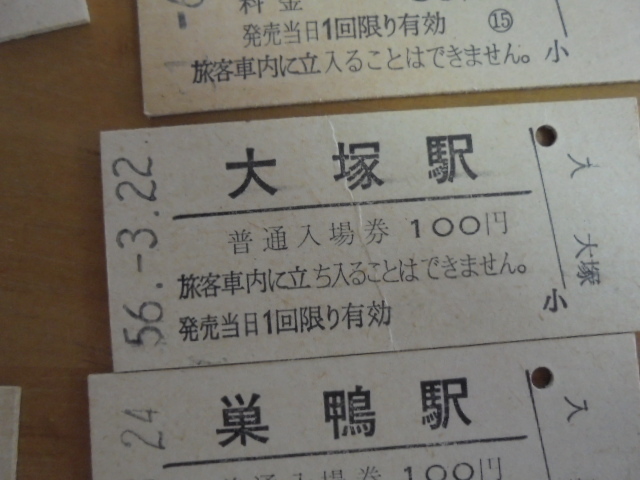 料金
発売当日1回限り有効 ⑮
旅客車内に立入ることはできません。
小
56.-3.22
大塚駅
普通入場券 100円
旅客車内に立ち入ることはできません。
発売当日1回限り有効
入
大塚
小
24
巣鴨駅
普通入場券 100円
入